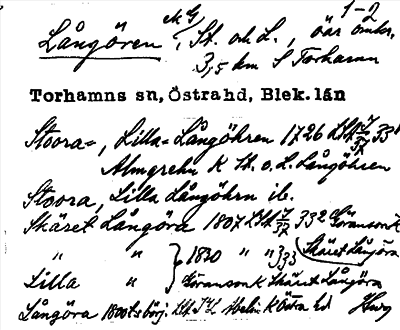 1-2
Långören, St. och L., öar omkr.
3,5 km S Torhamn
Torhamns sn, Östra hd, Blek. län
Stoora-, Lilla- Långöhren 1726
Almgrehn K St. o. L. Långöhren
Stoora, Lilla Långöhrn ib.
Skäret Långöra 1807 332 Göransson K
" " 1830 " " 333 Skäret Långöra
Lilla " Göransson K Skäret Långöra
Långöra 1800-t:s börj. K Östra hd